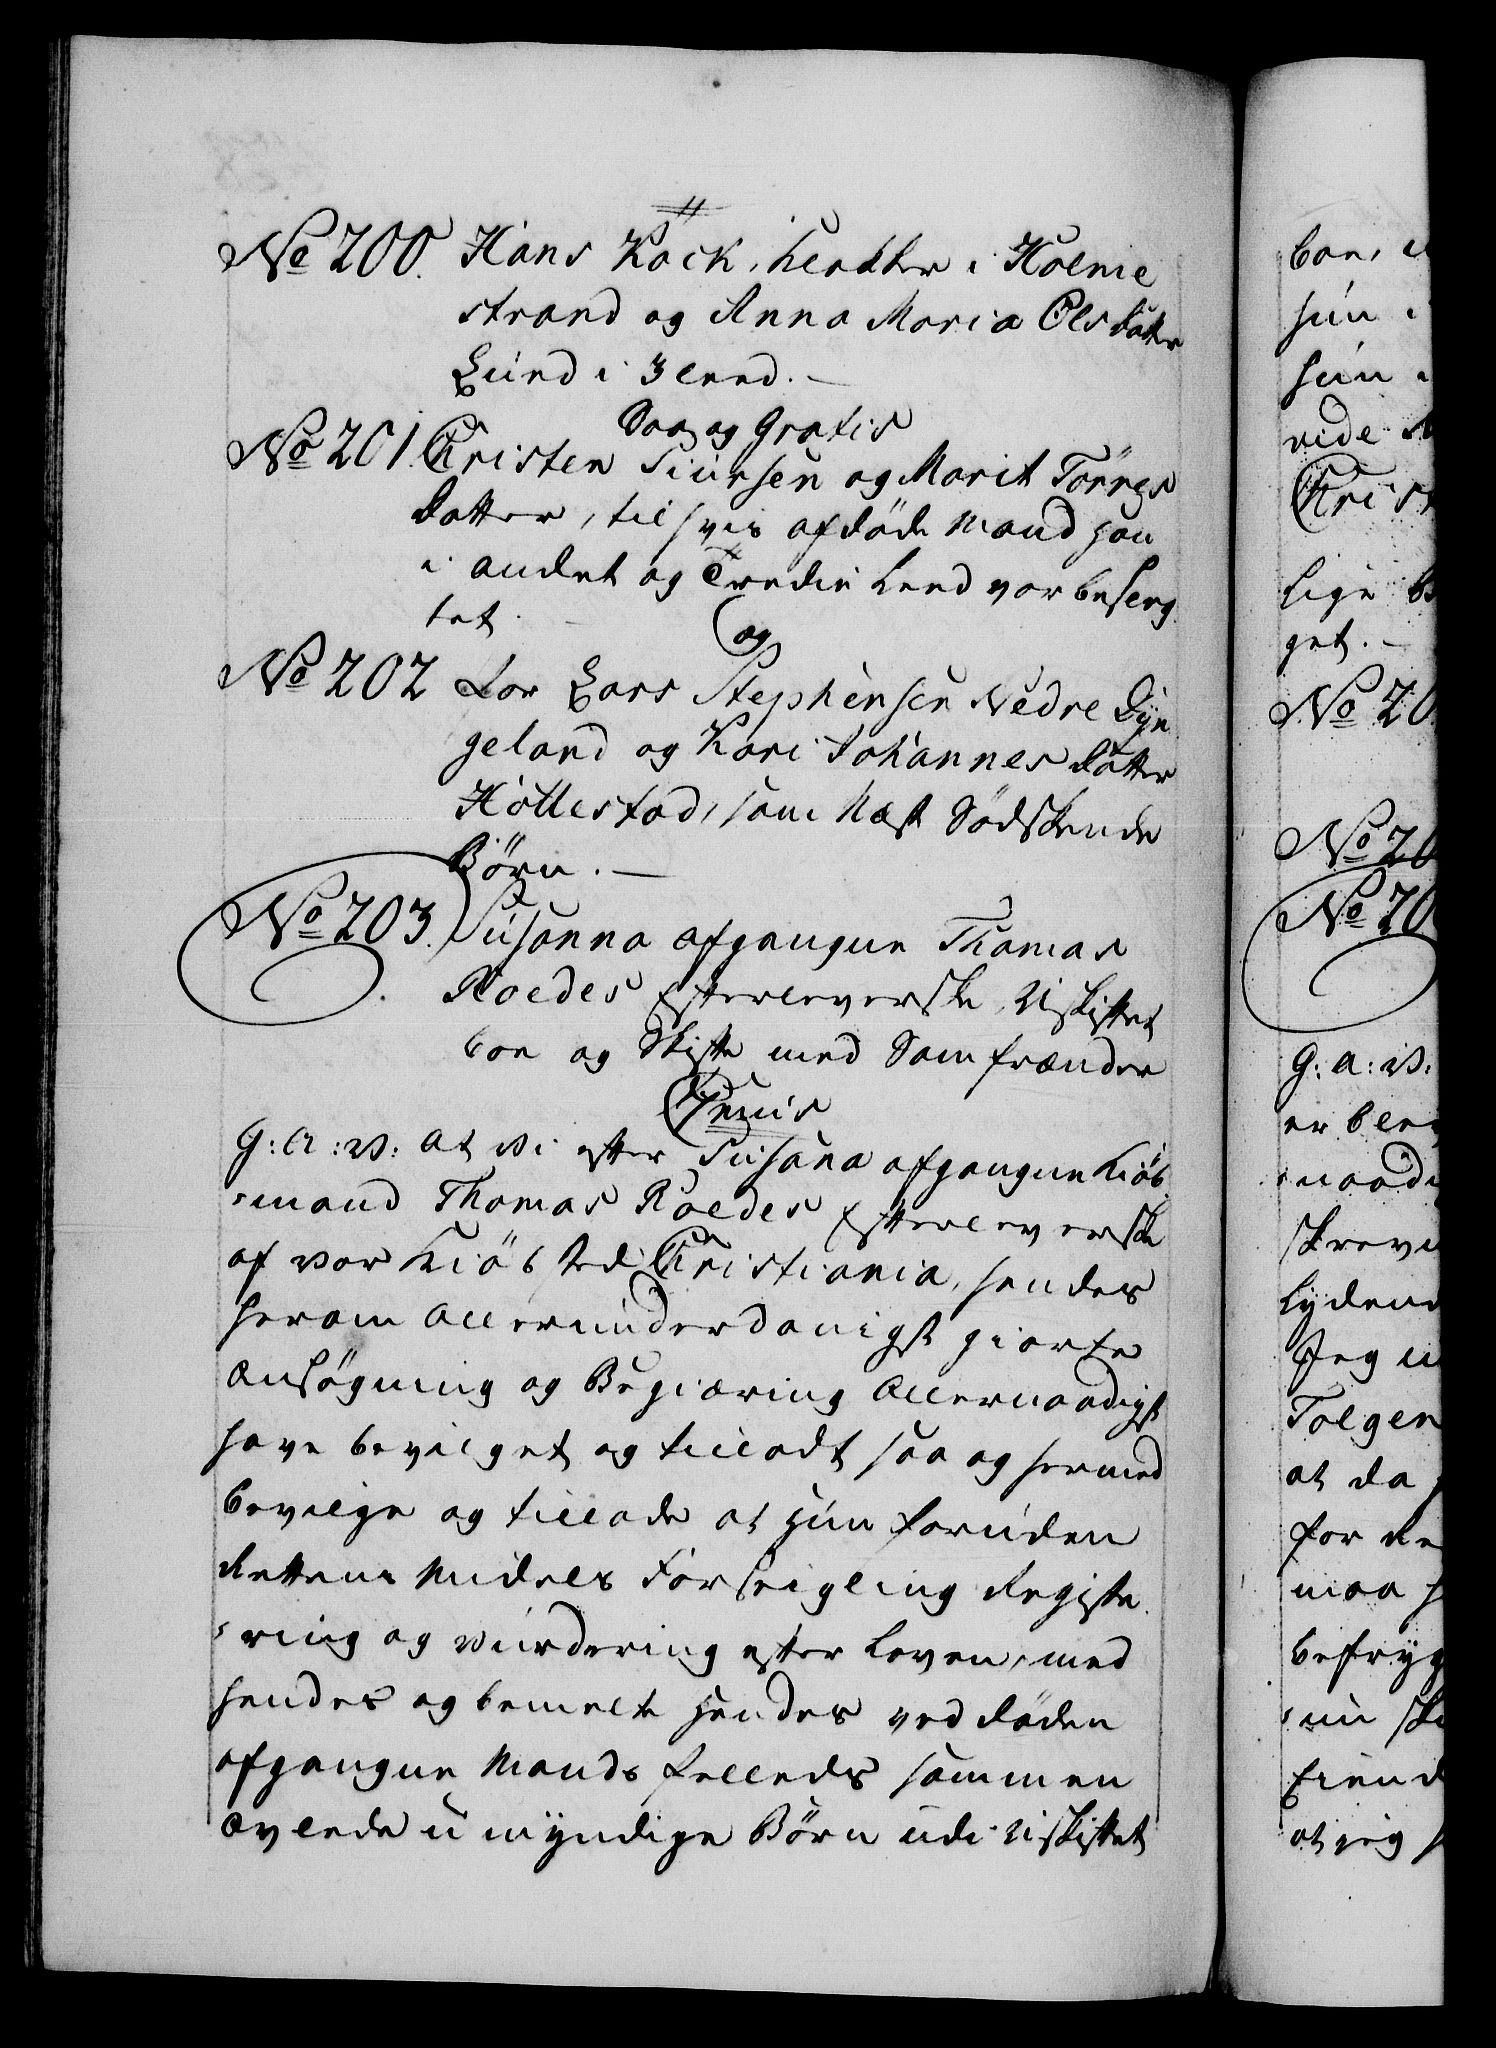 No 200. Hans Kock, Kradser i Holme
strand og Anna Maria Olsdatter
Lund i 3 leed.
Saa og Gratis
No 201. Christen Siursen og Marit Törres
datter, til hvis afdöde Mand han
i andet og Tredie Leed var beslegtet.
og
No 202 For Lars Stephensen Nedre Dyn
geland og Kari Johannes datter
Hottestad, som Næst Södskende
Börn.
No 203. Susanna afgangne Thomas
Roedes Efterleverske, Uskiftet
boe og Skifte med Samfrænder
G: A: V: at Vi efter Susana afgangne Kiöb
mand Thomas Roedes Efterleverske
af vor Kiöbsted Christiania, hendes
herom allerunderdanigst giorte
ansögning og Begiæring allernaadigst
have bevilget og tilladt saa og hermed
bevilge og tillade at hun foruden
Rettens Midels Forseigling Registe
ring og Vurdering efter Loven, med
hendes og bemelte hendes ved döden
afgangne Mands felleds sammen
avlede umyndige Börn udi uskiftet
boe, 
hun i
hun 
vide
Chris
lige
get.
No 20
No 20
No 20
G: A: V:
er bley
naadi
skrev
Lydend
Jeg
Tolger
at da
for de
maa
befryg
un sk
Eiend
at jeg